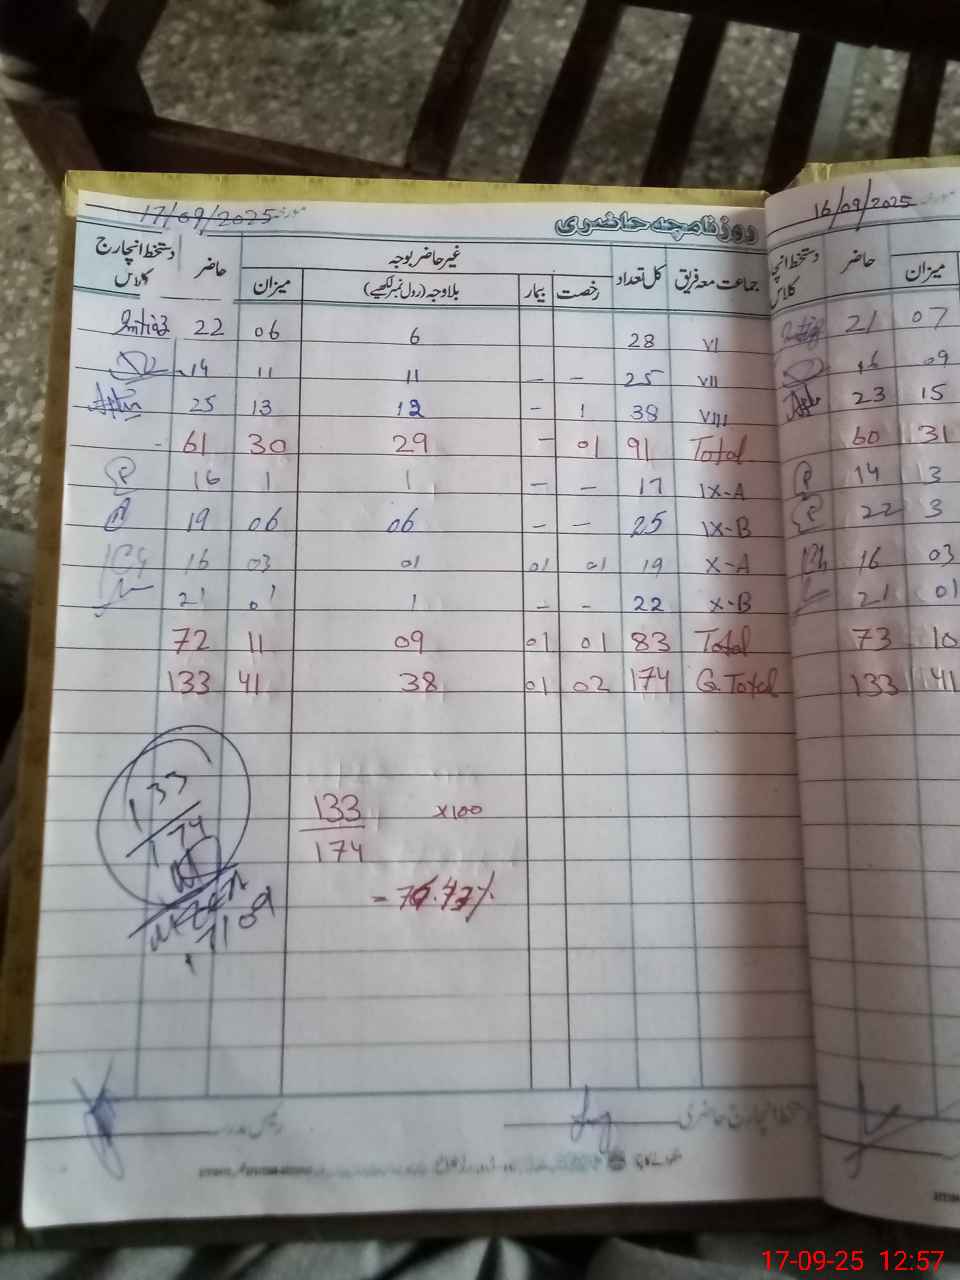 روزنامچہ حاضری
مورخہ 17/09/2025
جماعت معہ فریق کل تعداد غیر حاضر بوجہ حاضر دستخط انچارج کلاس
رخصت بیمار بلاوجہ (رول نمبر لکھیے) میزان
VI 28 6 06 22 Imtiaz
VII 25 - - 11 11 14
VIII 38 1 - 12 13 25
Total 91 01 - 29 30 61
IX-A 17 - - 1 1 16
IX-B 25 - - 06 06 19
X-A 19 01 01 01 03 16
X-B 22 - - 1 01 21
Total 83 01 01 09 11 72
G.Total 174 02 01 38 41 133
133 x100
174
= 76.43%
133
174
دستخط انچارج حاضری
رئیس مدرسہ
16/09/2025 مورخہ
دستخط انچارج کلاس حاضر میزان
21 07
16 09
23 15
60 31
14 13
22 3
16 03
21 01
73 10
133 41
17-09-25 12:57